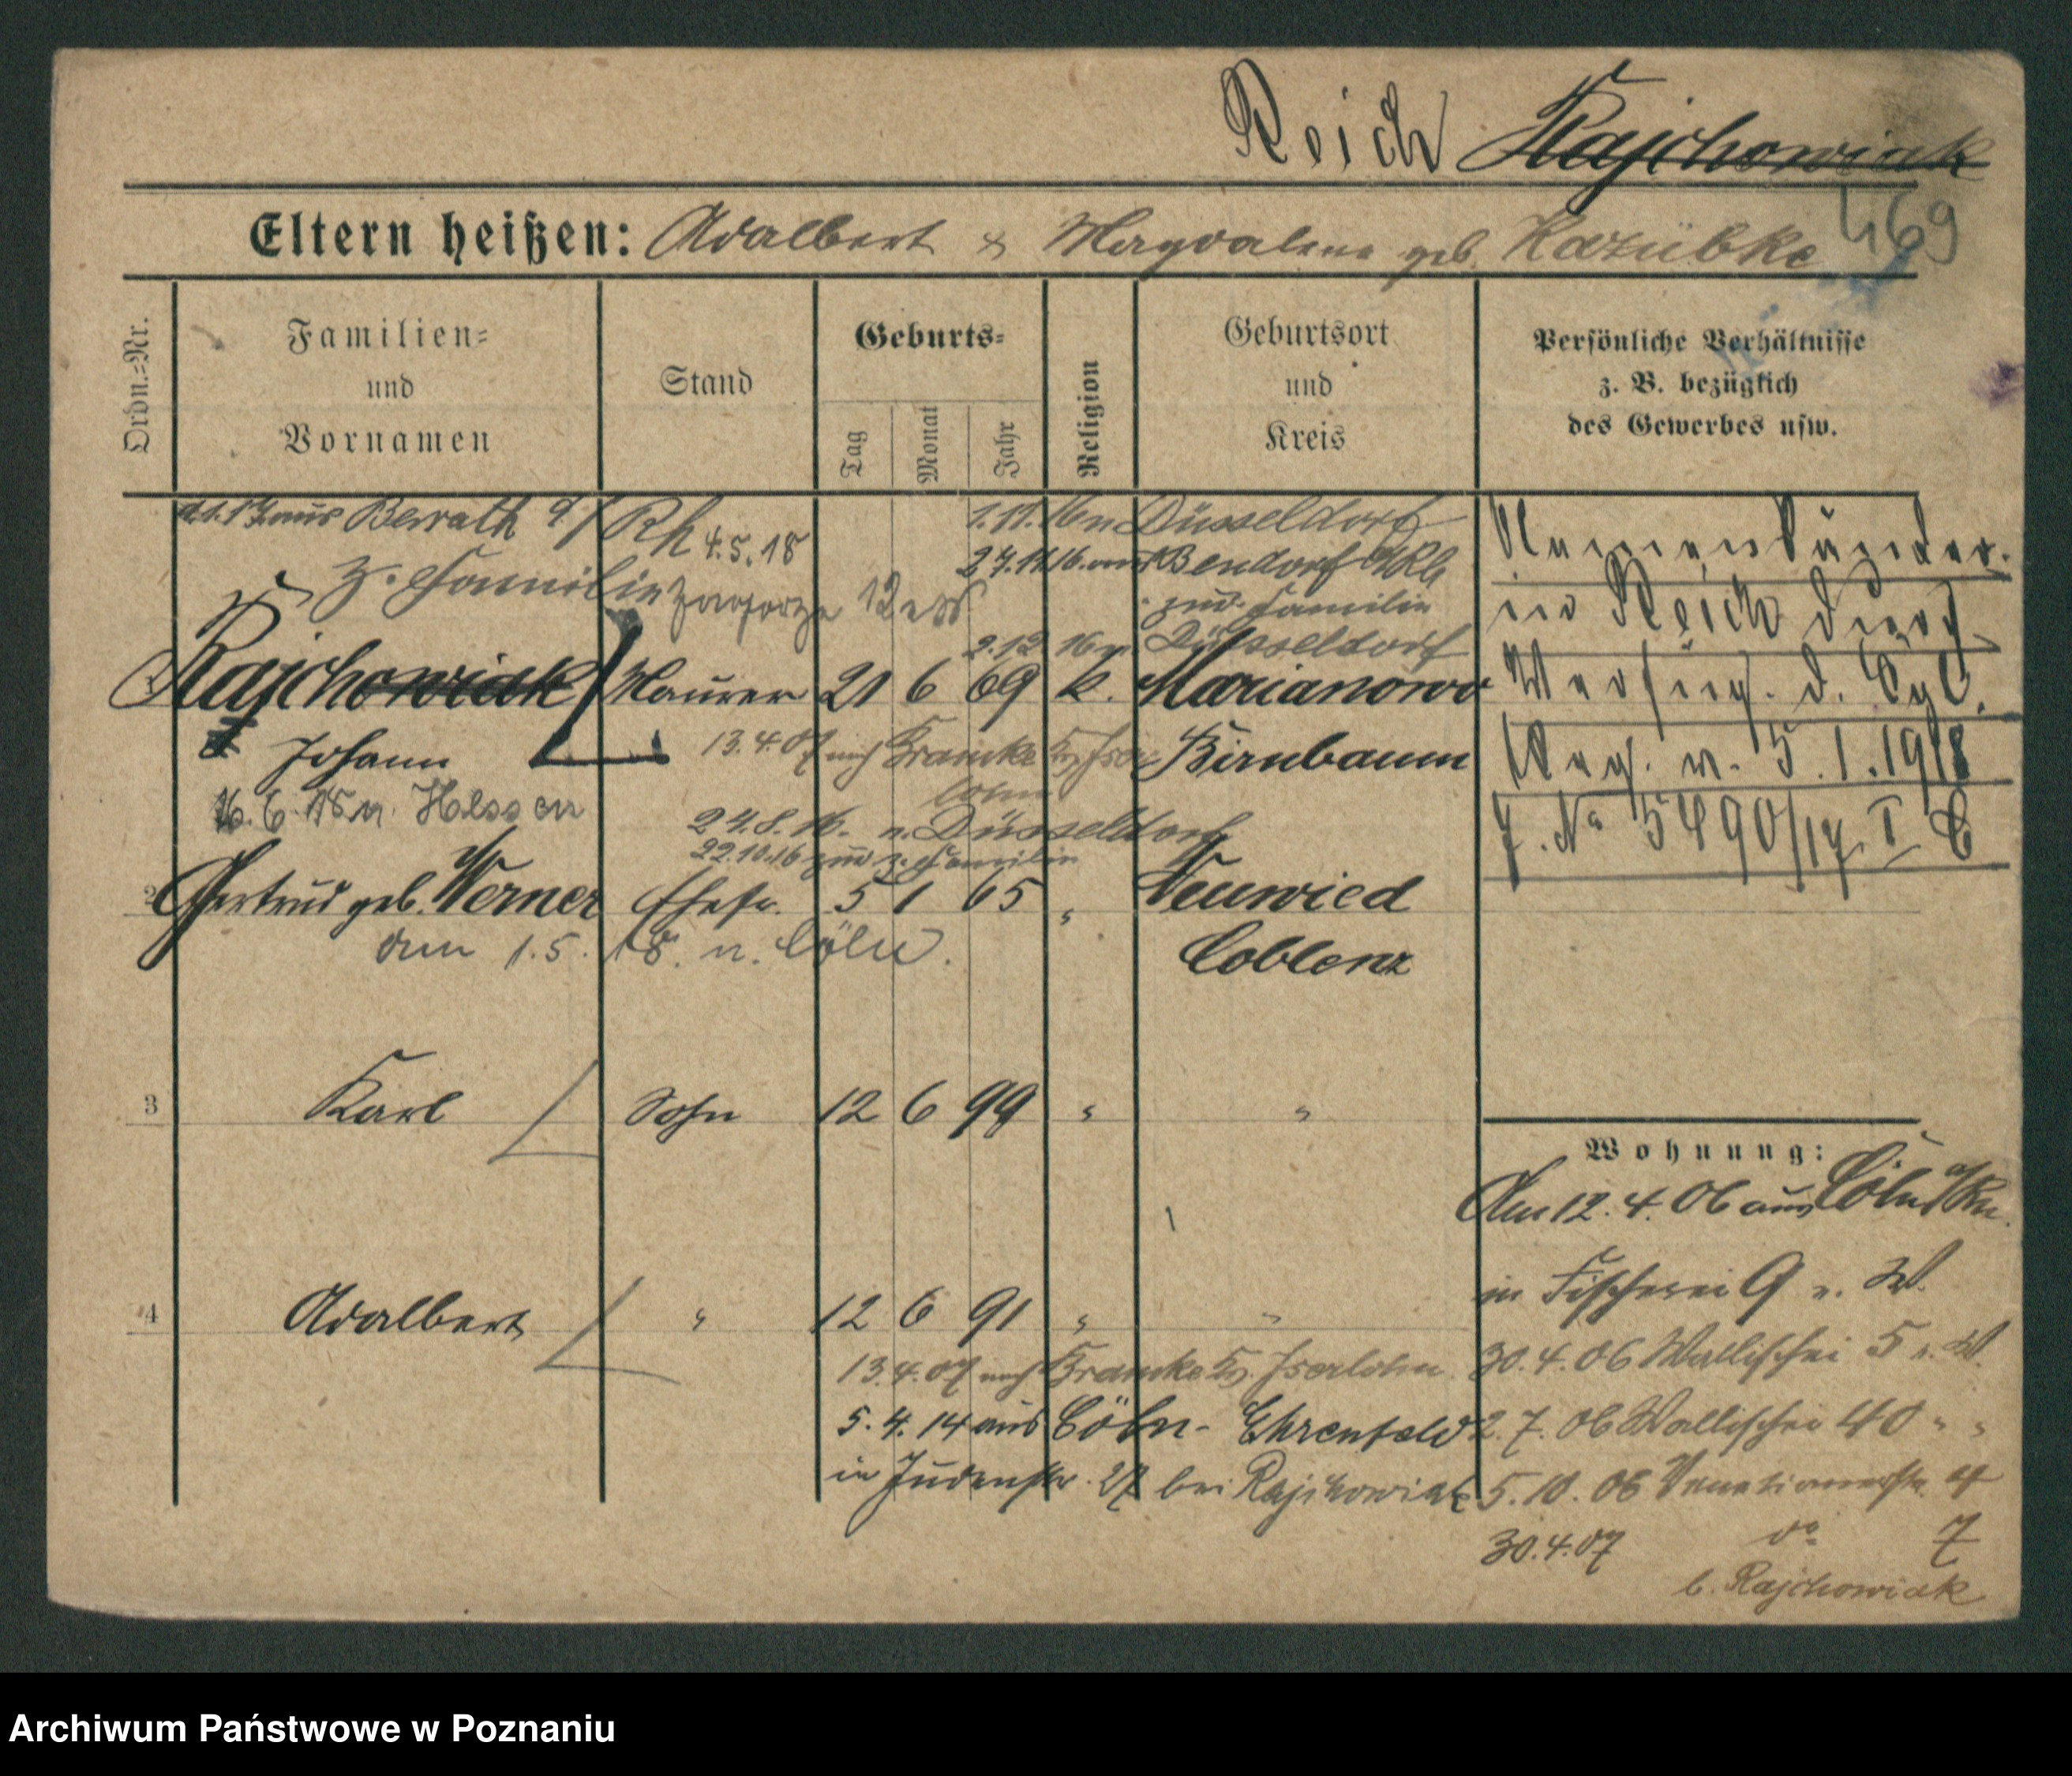 Reich Rajchowiak
469
Eltern heißen: Adalbert & Magdalena geb. Kazubke
Ordn.-Nr.
Familien-
und
Vornamen
Stand
Geburts-
Tag
Monat
Jahr
Religion
Geburtsort
und
Kreis
Persönliche Verhältnisse
z. B. bezüglich
des Gewerbes usw.
aus Benrath a/Rh 4.5.18
z. Familie
1.11.16 n Düsseldorf
27.11.16. aus Bendorf a/Rh
zur Familie
2.12.16 n. Düsseldorf
Rajchowiak Maurer 21 6 69 k. Marianowo
Johann
13.4.07 nach
Birnbaum
16.6.18 n. Hessen
24.8.16. n. Düsseldorf
22.10.16 zur z. Familie
2 Gertrud geb. Werner Ehefr. 5 1 65 " Neuwied
am 1.5.18. n. Cöln.
Coblenz
3 Karl Sohn 12 6 99 " "
4 Adalbert " 12 6 91 " "
13.4.07 nach Iserlohn
5.4.14 aus Cöln-Ehrenfeld
in Judenstr. 27 bei Rajchowiak
Namensänder.
in Reich durch
Verfüg. d. Kgl.
Reg. v. 5.1.1918
J. No 5490/17. I C
Wohnung:
Am 12.4.06 aus Cöln a/Rh.
in Fischerei 9 v. W.
30.4.06 Wallischei 5 v. W.
2.7.06 Wallischei 40 " "
5.10.06 Venetianerstr. 4
30.4.07 do 7
b. Rajchowiak
Archiwum Państwowe w Poznaniu